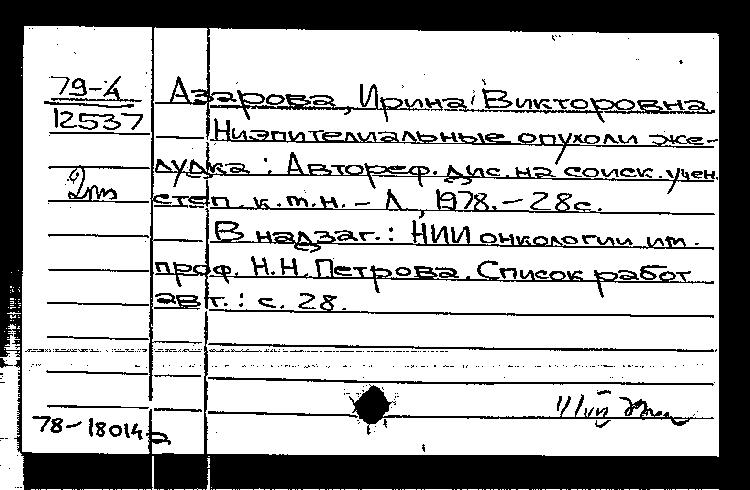 79-4
12537
2т
Азарова, Ирина Викторовна
Ниэпителиальные опухоли же-
лудка : Автореф. дис. на соиск. учен.
степ. к.м.н. - Л., 1978. - 28 с.
В надзаг.: НИИ онкологии им.
проф. Н.Н. Петрова. Список работ
авт.: с. 28.
78-18014а